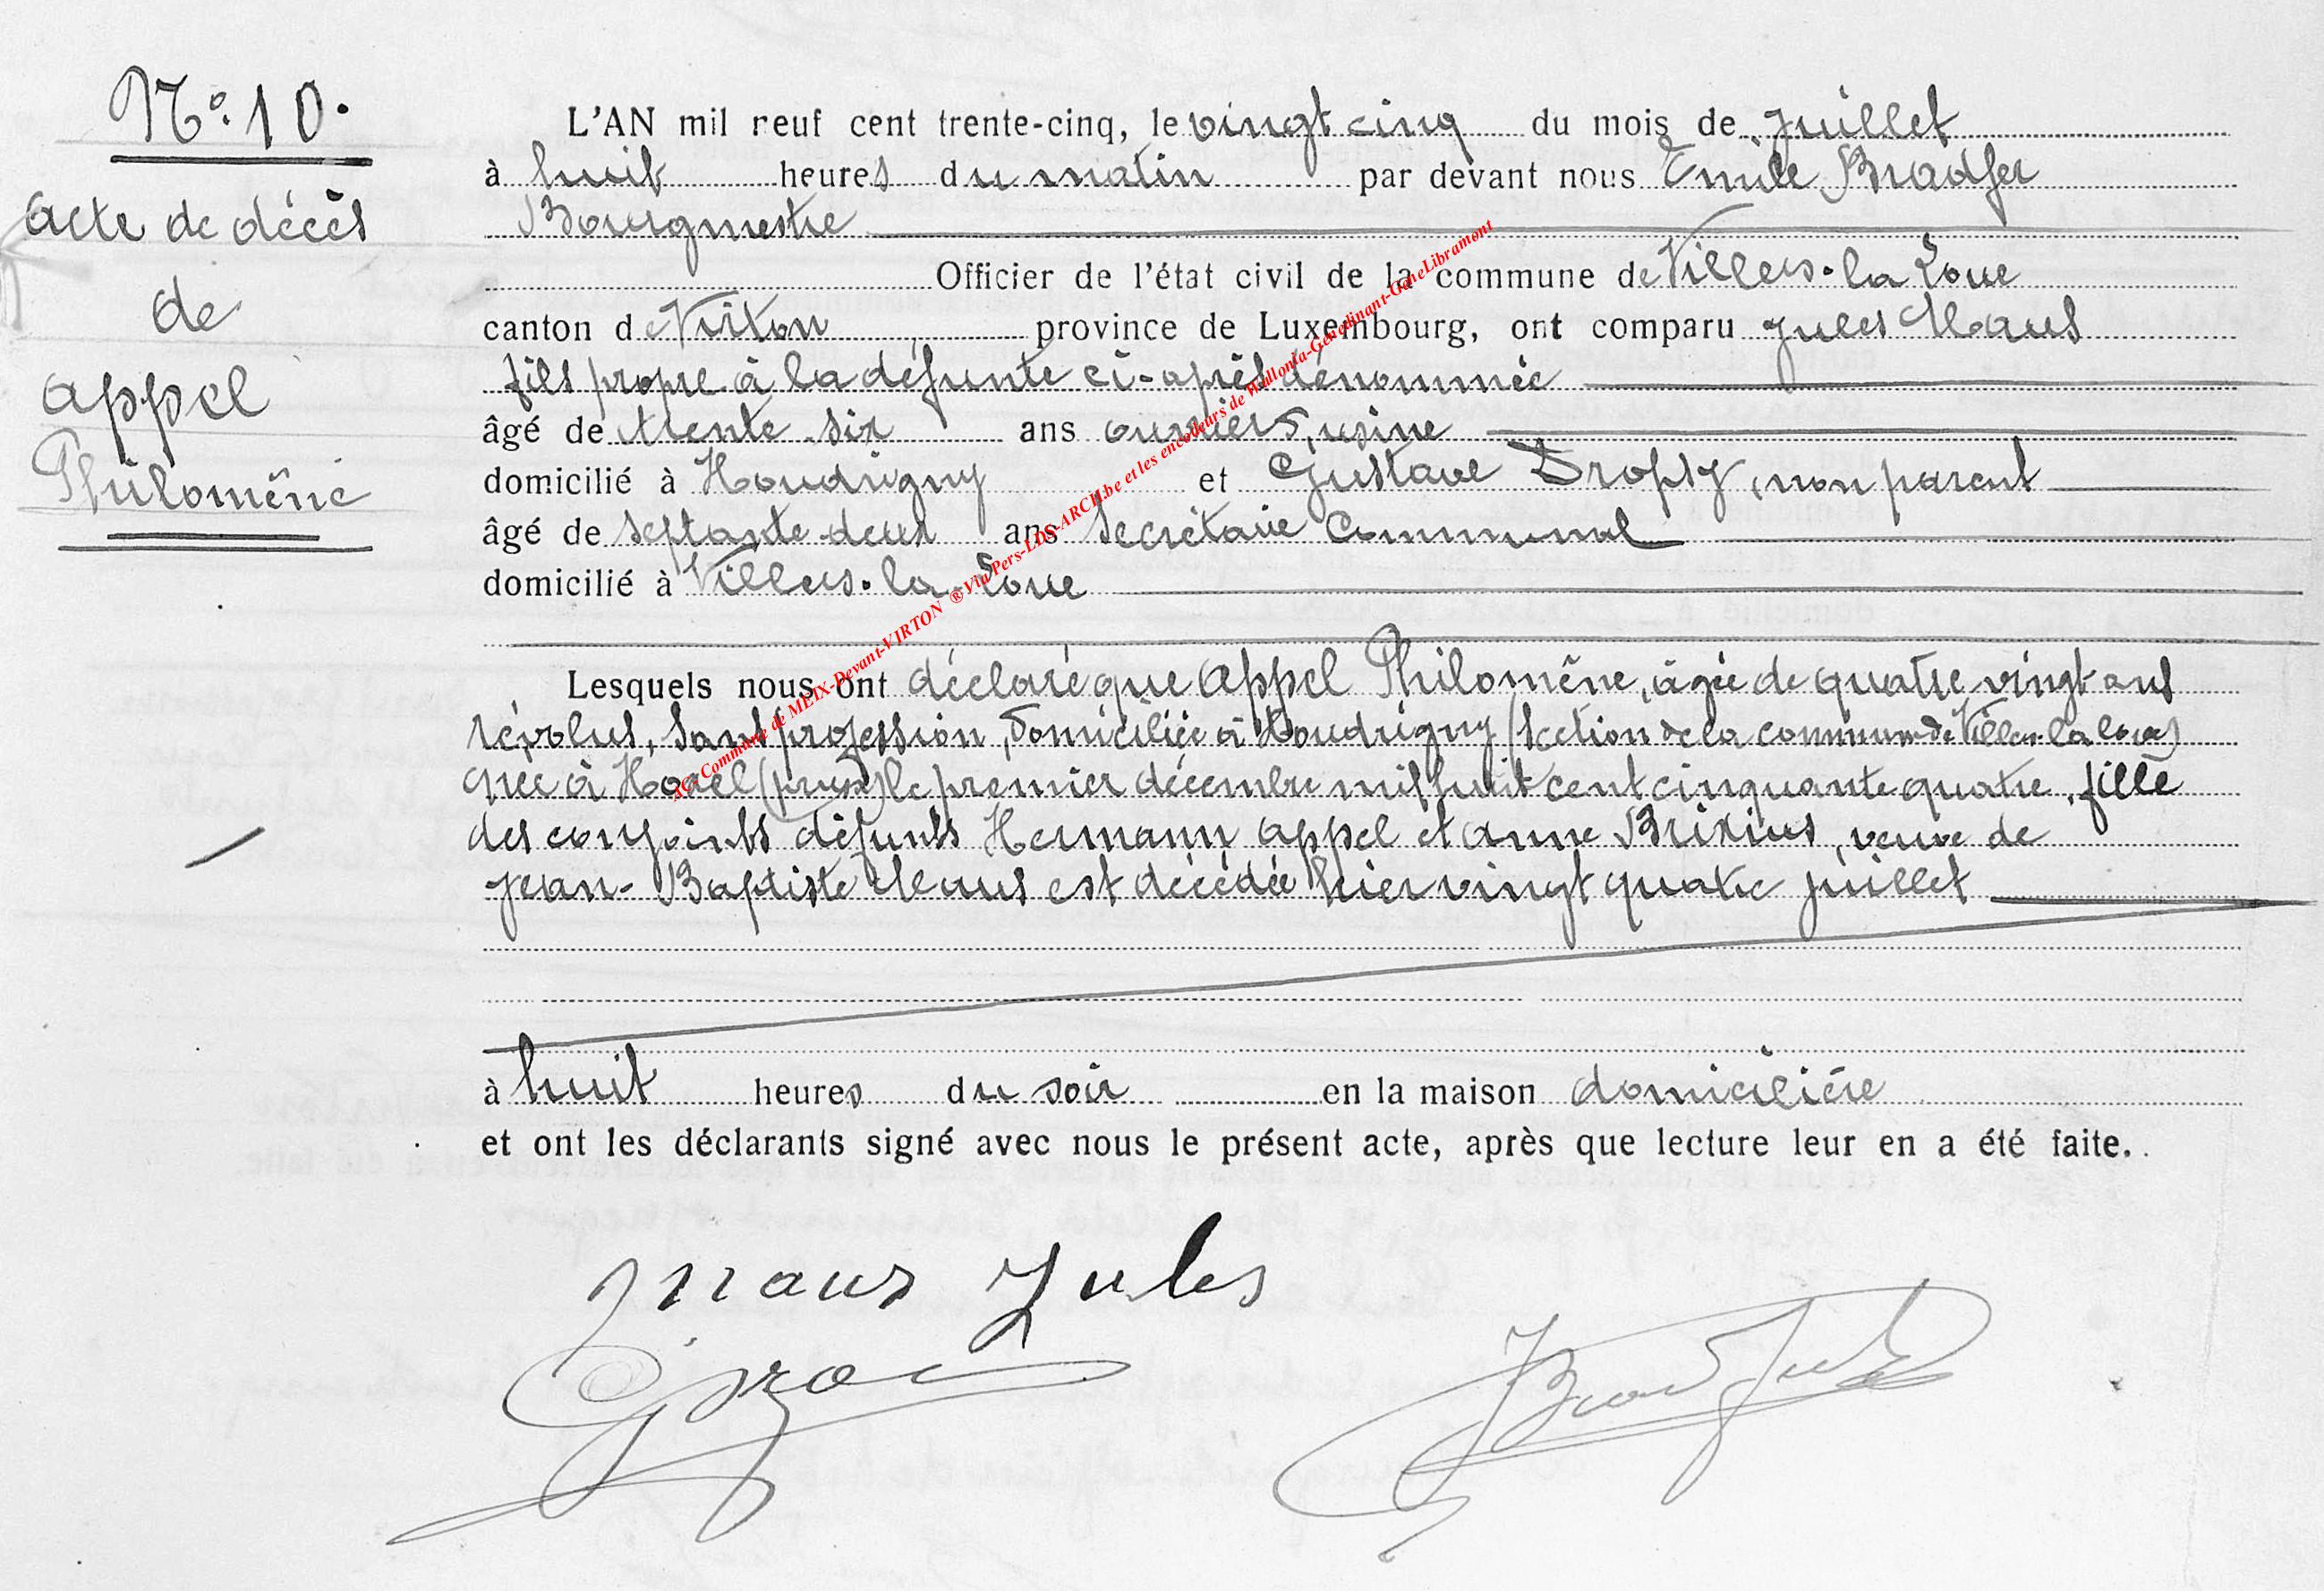 N°: 10.
Acte de décès
de
Appel
Philomène
L'AN mil neuf cent trente-cinq, le vingt cinq du mois de Juillet
à huit heures du matin par devant nous Emile Bradfer
Bourgmestre
Officier de l'état civil de la commune de Villers-la Loue
canton de Virton province de Luxembourg, ont comparu Jules Maus
fils propre à la défunte ci-après dénommée
âgé de trente-six ans ouvrier, usine
domicilié à Houdrigny et Gustave Dropsy, non parent
âgé de septante-deux ans Secrétaire Communal
domicilié à Villers-la-Loue
Lesquels nous ont déclaré que Appel Philomène, âgée de quatre vingt ans
révolus, sans profession, domiciliée à Houdrigny (section de la commune de Villers-la Loue)
née à (prusse) le premier décembre mil huit cent cinquante quatre, fille
des conjoints défunts Hermann Appel et Anne Brixius, veuve de
Jean-Baptiste Maus est décédée hier vingt quatre juillet
à huit heures du soir en la maison domicilière
et ont les déclarants signé avec nous le présent acte, après que lecture leur en a été faite.
Maus Jules
Bradfer
Commune de MEIX-Devant-VIRTON ® Via Pers-LDS-ARCH.be et les encodeurs de Wallonia-Genedinant-GeneLibramont